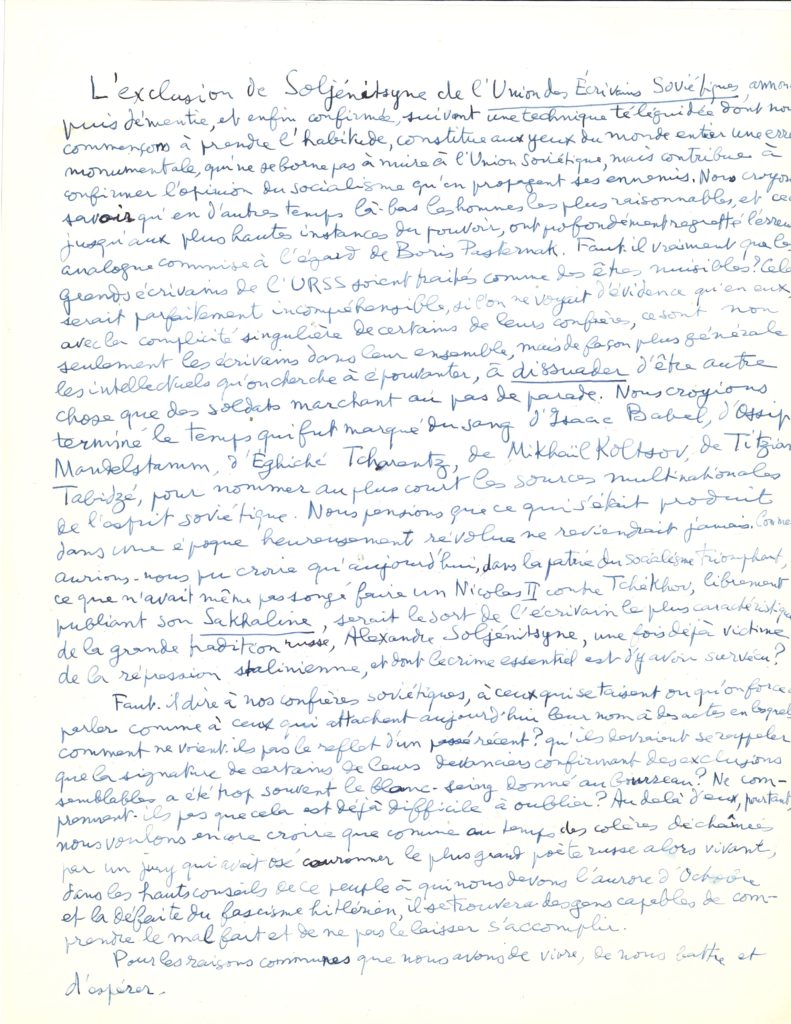 L'exclusion de Soljénitsyne de l'Union des Écrivains Soviétiques, annon
puis démentie, et enfin confirmée, suivant une technique téléguidée dont nou
commençons à prendre l'habitude, constitue aux yeux du monde entier une erre
monumentale, qui ne se borne pas à nuire à l'Union Soviétique, mais contribue à
confirmer l'opinion du socialisme qu'en propagent ses ennemis. Nous croyon
savoir qu'en d'autres temps là-bas les hommes les plus raisonnables, et ce
jusqu'aux plus hautes instances du pouvoir, ont profondément regretté l'erreu
analogue commise à l'égard de Boris Pasternak. Faut-il vraiment que les
grands écrivains de l'URSS soient traités comme des êtres nuisibles? Cela
serait parfaitement incompréhensible, si l'on ne voyait d'évidence qu'en eux,
avec la complicité singulière de certains de leurs confrères, ce sont non
seulement les écrivains dans leur ensemble, mais de façon plus générale
les intellectuels qu'on cherche à épouvanter, à dissuader d'être autre
chose que des soldats marchant au pas de parade. Nous croyions
terminé le temps qui fut marqué du sang d'Isaac Babel, d'Ossip
Mandelstamm, d'Éghiché Tcharentz, de Mikhaïl Koltsov, de Titzian
Tabidzé, pour nommer au plus court les sources multinationales
de l'esprit soviétique. Nous pensions que ce qui s'était produit
dans une époque heureusement révolue ne reviendrait jamais. Comme
aurions-nous pu croire qu'aujourd'hui, dans la patrie du socialisme triomphant,
ce que n'avait même pas songé faire un Nicolas II contre Tchékhov, librement
publiant son Sakhaline, serait le sort de l'écrivain le plus caractéristique
de la grande tradition russe, Alexandre Soljénitsyne, une fois déjà victime
de la répression stalinienne, et dont le crime essentiel est d'y avoir survécu?
Faut-il dire à nos confrères soviétiques, à ceux qui se taisent ou qu'on force à
parler comme à ceux qui attachent aujourd'hui leur nom à des actes
comment ne voient-ils pas le reflet d'un passé récent? qu'ils devraient se rappeler
que la signature de certains de leurs devanciers confirmant des exclusions
semblables a été trop souvent le blanc-seing donné au bourreau? Ne com-
prennent-ils pas que cela est déjà difficile à oublier? Au delà d'eux, pourtant,
nous voulons encore croire que comme au temps des colères déchaînées
par un jury qui avait osé couronner le plus grand poète russe alors vivant,
dans les hauts conseils de ce peuple à qui nous devons l'aurore d'Octobre
et la défaite du fascisme hitlérien, il se trouvera des gens capables de com-
prendre le mal fait et de ne pas le laisser s'accomplir.
Pour les raisons communes que nous avons de vivre, de nous battre et
d'espérer.